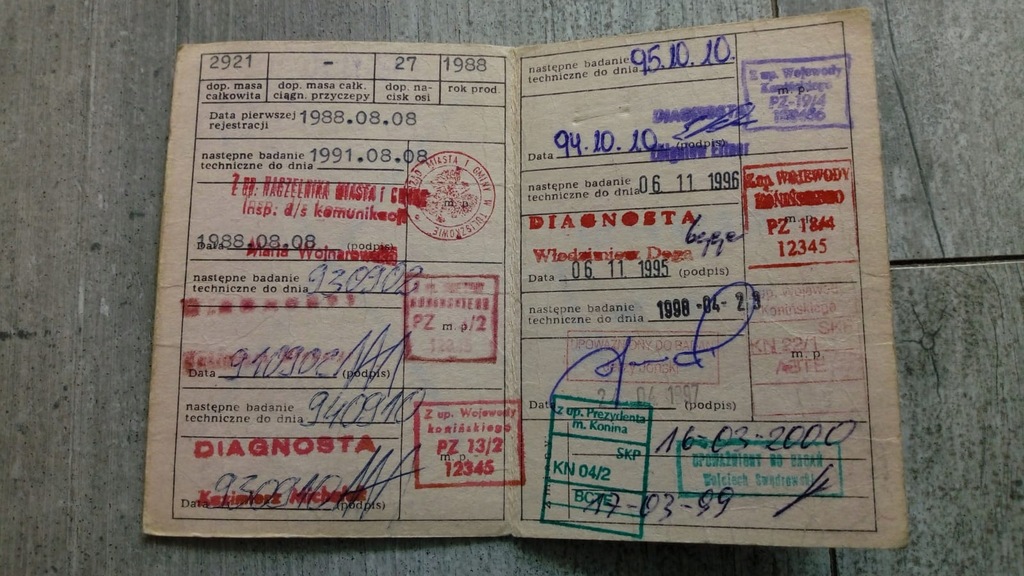 2921 - 27 1988
dop. masa całkowita
dop. masa całk. ciągn. przyczepy
dop. nacisk osi
rok prod.
Data pierwszej rejestracji 1988.08.08
następne badanie techniczne do dnia 1991.08.08
Z up. NACZELNIKA MIASTA i GMINY
Insp. d/s komunikacji
m. p.
MIASTA I GMINY W TULISZKOWIE
Data 1988.08.08 (podpis)
Maria Wojnarowska
następne badanie techniczne do dnia 930902
PZ /2
m. p.
Data 910902 (podpis)
następne badanie techniczne do dnia 940910
DIAGNOSTA
Z up. Wojewody
konińskiego
PZ 13/2
m. p.
12345
Kazimierz
Data 930910 (podpis)
następne badanie techniczne do dnia 95.10.10.
Z up. Wojewody
m. p.
DIAGNOSTA
Data 94.10.10 (podpis)
Zbigniew
następne badanie techniczne do dnia 06 11 1996
Z up. WOJEWODY
KONIŃSKIEGO
m. p.
PZ 18/4
12345
DIAGNOSTA
Włodzimierz
Data 06 11 1995 (podpis)
następne badanie techniczne do dnia 1998-04-23
Konińskiego
SKP
KN 22/1
m. p.
UPOWAŻNIONY DO BADAŃ
Data 04 1997 (podpis)
Z up. Prezydenta
m. Konina
SKP
KN 04/2
16-03-2000
UPOWAŻNIONY DO BADAŃ
Wojciech Swędrowski
17-03-99